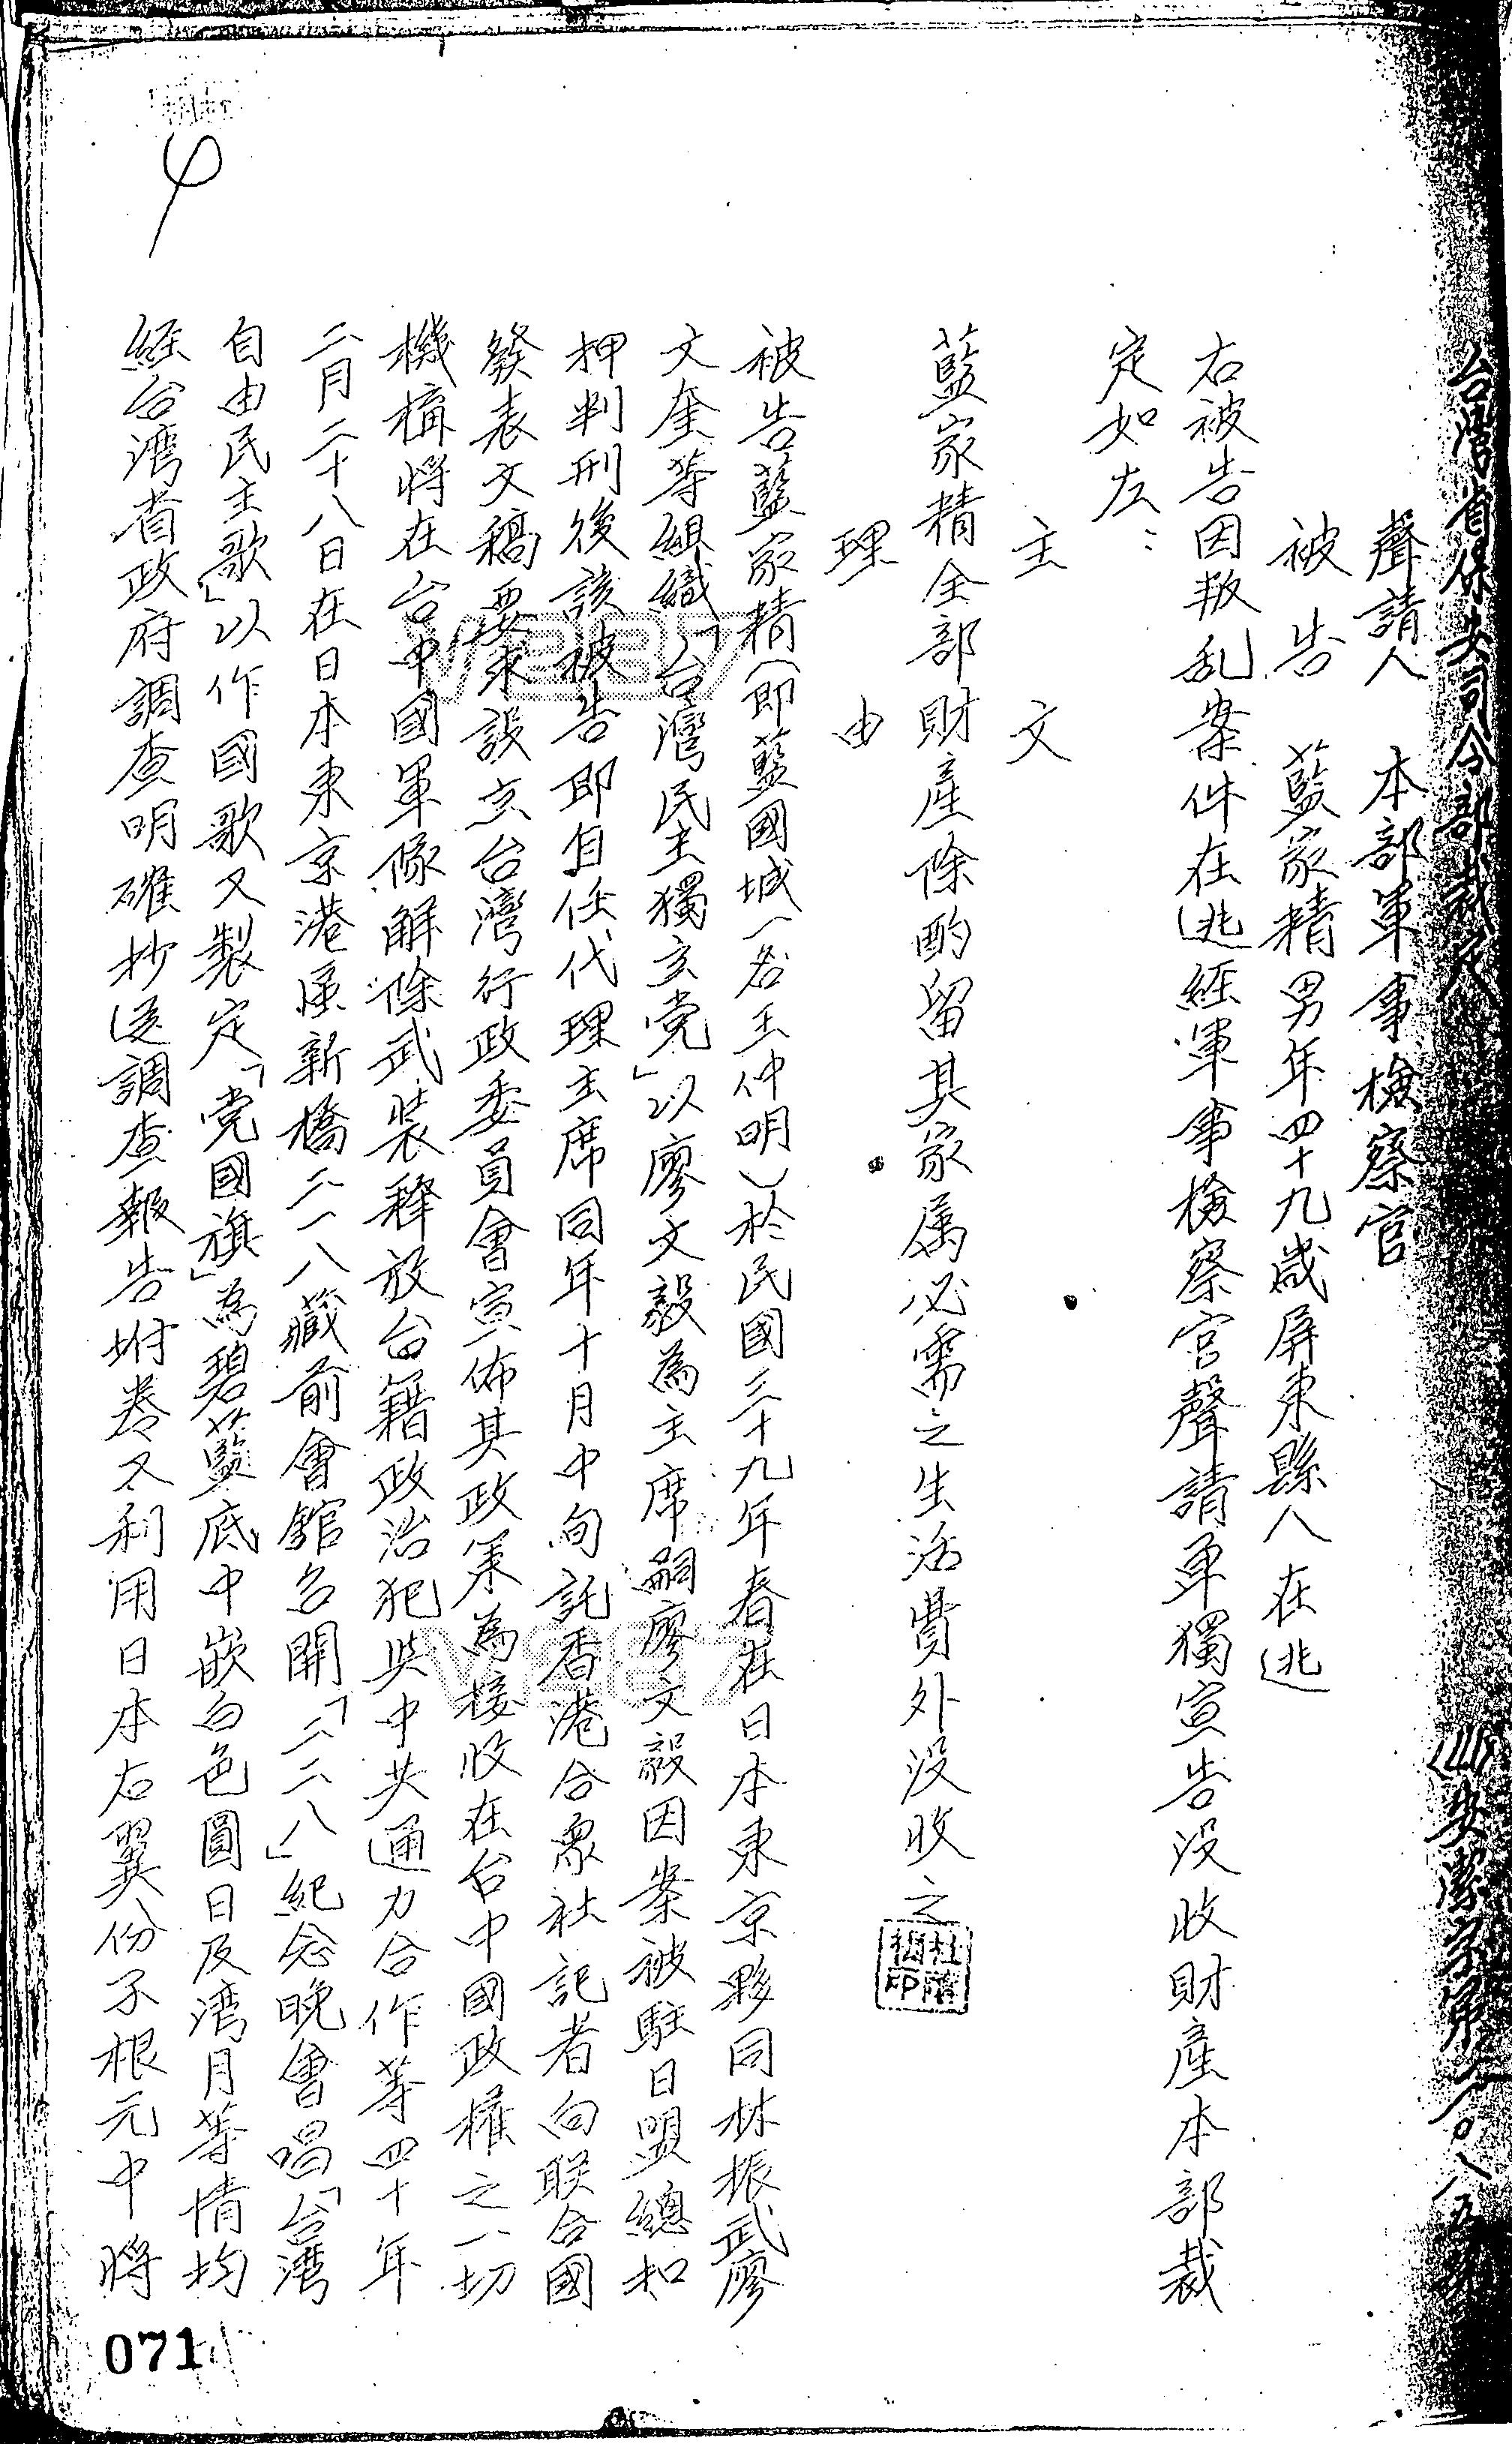 台灣省保安司令部裁定
聲請人　本部軍事檢察官
被告　藍家精男年四十九歲屏東縣人在逃
右被告因叛乱案件在逃經軍事檢察官聲請單獨宣告沒收財產本部裁
定如左：
主　文
藍家精全部財產除酌留其家屬必需之生活費外沒收之
理　由
被告藍家精(即藍國城一名王仲明)於民國三十九年春在日本東京夥同林振武廖
文奎等組織「台灣民主獨立党」以廖文毅為主席嗣廖文毅因案被駐日盟總扣
押判刑後該被告即自任代理主席同年十月中旬託香港合眾社記者向联合國
發表文稿要求設立台灣行政委員會宣佈其政策為接收在台中國政權之一切
機構將在台中國軍隊解除武裝釋放台籍政治犯與中共通力合作等四十年
二月二十八日在日本東京港區新橋二一八藏前會館召開「二二八」紀念晚會唱「台湾
自由民主歌」以作國歌又製定「党國旗」為碧藍底中嵌白色圓日及湾月等情均
經台湾省政府調查明確抄送調查報告坿卷又利用日本右翼份子根元中將
071